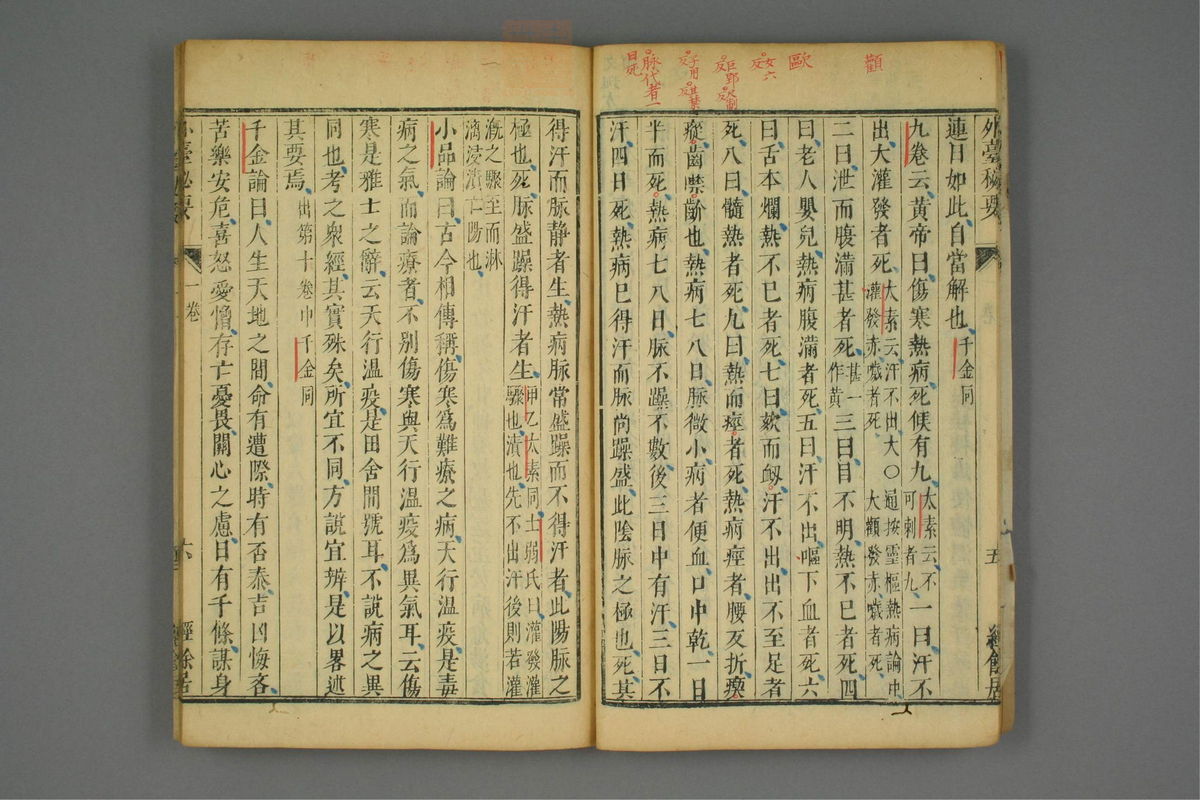 觀
歐
女六反
巨郢反 尺制反
子用反 其禁反
脉代者一日死
外臺秘要
五
經餘居
連日如此自當解也千金同
九卷云黃帝曰傷寒熱病死候有九太素云不可刺者九一曰汗不
出大灌發者死太素云汗不出大灌發赤噦者死〇通按靈樞熱病論中大觀發赤噦者死
二曰泄而腹滿甚者死甚一作黃三曰目不明熱不已者死四
曰老人嬰兒熱病腹滿者死五曰汗不出嘔下血者死六
曰舌本爛熱不已者死七曰欬而衂汗不出出不至足者
死八曰髓熱者死九曰熱而痙者死熱病痙者腰反折瘈
瘲齒噤齘也熱病七八日脉微小病者便血口中乾一日
半而死熱病七八日脉不躁不數後三日中有汗三日不
汗四日死熱病已得汗而脉尚躁盛此陰脉之極也死其
得汗而脉静者生熱病脉常盛躁而不得汗者此陽脉之
極也死脉盛躁得汗者生甲乙太素同士弱氏曰灌發灌驟也漬也先不出汗後則若灌
漑之驟至而淋漓浸漬亡陽也
小品論曰古今相傳稱傷寒爲難療之病天行溫疫是毒
病之氣而論療者不別傷寒與天行溫疫爲異氣耳云傷
寒是雅士之辭云天行溫疫是田舍間號耳不說病之異
同也考之衆經其實殊矣所宜不同方說宜辨是以畧述
其要焉出第十卷中千金同
千金論曰人生天地之間命有遭際時有否泰吉凶悔吝
苦樂安危喜怒愛憎存亡憂畏關心之慮日有千條謀身
一卷
六
經餘居